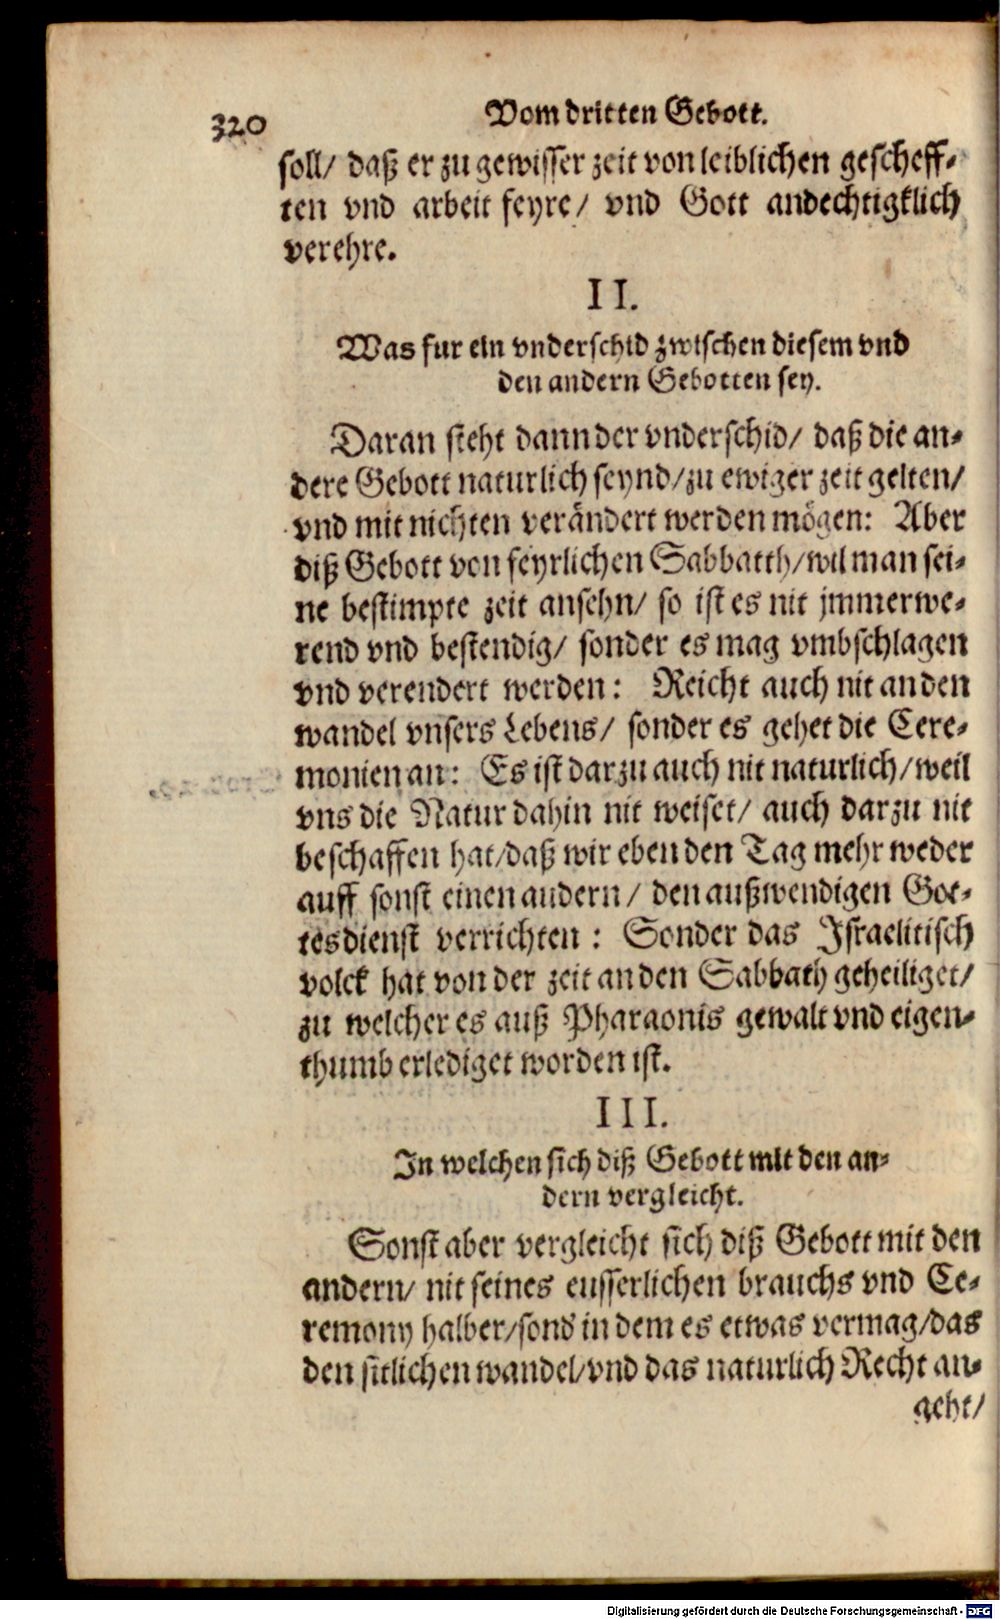 320
Vom dritten Gebott.
soll/ daß er zu gewisser zeit von leiblichen gescheff-
ten vnd arbeit feyre/ vnd Gott andechtigklich
verehre.
II.
Was fur ein vnderschid zwischen diesem vnd
den andern Gebotten sey.
Daran steht dann der vnderschid/ daß die an-
dere Gebott naturlich seynd/zu ewiger zeit gelten/
vnd mit nichten verändert werden mögen: Aber
diß Gebott von feyrlichen Sabbatth/wil man sei-
ne bestimpte zeit ansehn/ so ist es nit jmmerwe-
rend vnd bestendig/ sonder es mag vmbschlagen
vnd verendert werden: Reicht auch nit an den
wandel vnsers Lebens/ sonder es gehet die Cere-
monien an: Es ist darzu auch nit naturlich/weil
vns die Natur dahin nit weiset/ auch darzu nit
beschaffen hat/daß wir eben den Tag mehr weder
auff sonst einen andern/ den außwendigen Got-
tesdienst verrichten: Sonder das Israelitisch
volck hat von der zeit an den Sabbath geheiliget/
zu welcher es auß Pharaonis gewalt vnd eigen-
thumb erlediget worden ist.
III.
In welchen sich diß Gebott mit den an-
dern vergleicht.
Sonst aber vergleicht sich diß Gebott mit den
andern/ nit seines eusserlichen brauchs vnd Ce-
remony halber/sond in dem es etwas vermag/das
den sitlichen wandel/vnd das naturlich Recht an-
geht/
Digitalisierung gefördert durch die Deutsche Forschungsgemeinschaft - DFG